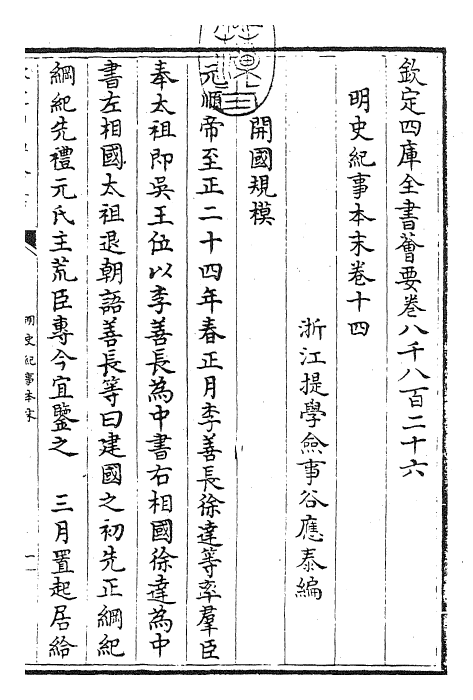 欽定四庫全書薈要卷八千八百二十六
明史紀事本末卷十四
浙江提學僉事谷應泰編
開國規模
元順帝至正二十四年春正月李善長徐達等率羣臣
奉太祖即吳王位以李善長為中書右相國徐達為中
書左相國太祖退朝語善長等曰建國之初先正綱紀
綱紀先禮元氏主荒臣專今宜鑒之　三月置起居給
明史紀事本末
一